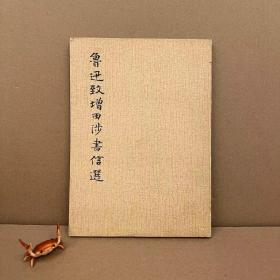 魯迅致增田涉書信選